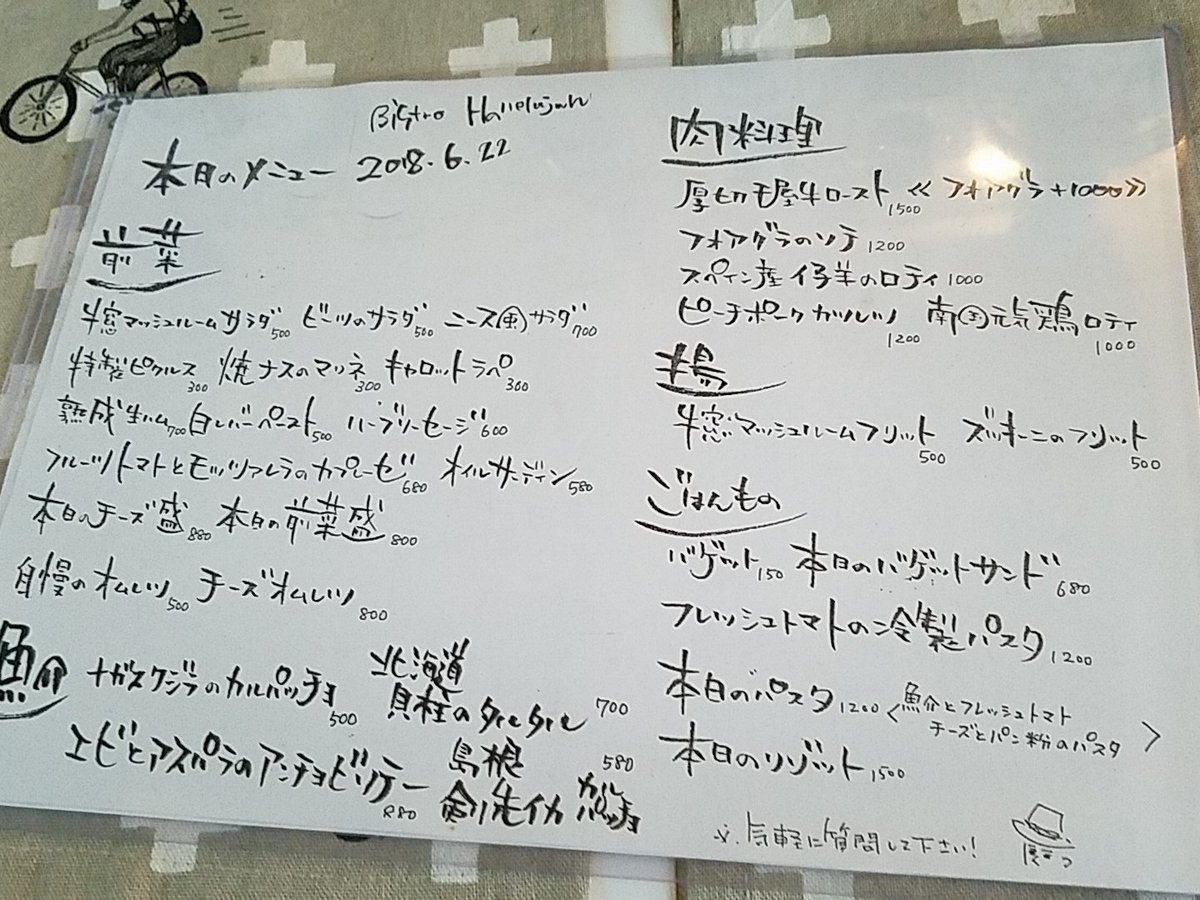 Bistro Hallelujah
本日のメニュー 2018.6.22
前菜
牛窓マッシュルームサラダ500 ビーツのサラダ500 ニース風サラダ700
特製ピクルス300 焼ナスのマリネ300 キャロットラペ300
熟成生ハム700 白レバーペースト500 ハーブソーセージ600
フルーツトマトとモッツァレラのカプレーゼ680 オイルサーディン580
本日のチーズ盛880 本日の前菜盛800
自慢のオムレツ500 チーズオムレツ800
魚介 ナガスクジラのカルパッチョ500 北海道貝柱のタルタル700
エビとアスパラのアンチョビソテー880 島根剣先イカカルパッチョ580
肉料理
厚切 屋牛ロースト1500 《フォアグラ+1000》
フォアグラのソテ1200
スペイン産仔羊のロティ1000
ピーチポークカツレツ1200 南国元気鶏ロティ1000
揚
牛窓マッシュルームフリット500 ズッキーニのフリット500
ごはんもの
バゲット150 本日のバゲットサンド680
フレッシュトマトの冷製パスタ1200
本日のパスタ1200 <魚介とフレッシュトマト
チーズとパン粉のパスタ>
本日のリゾット1500
※気軽に質問して下さい!